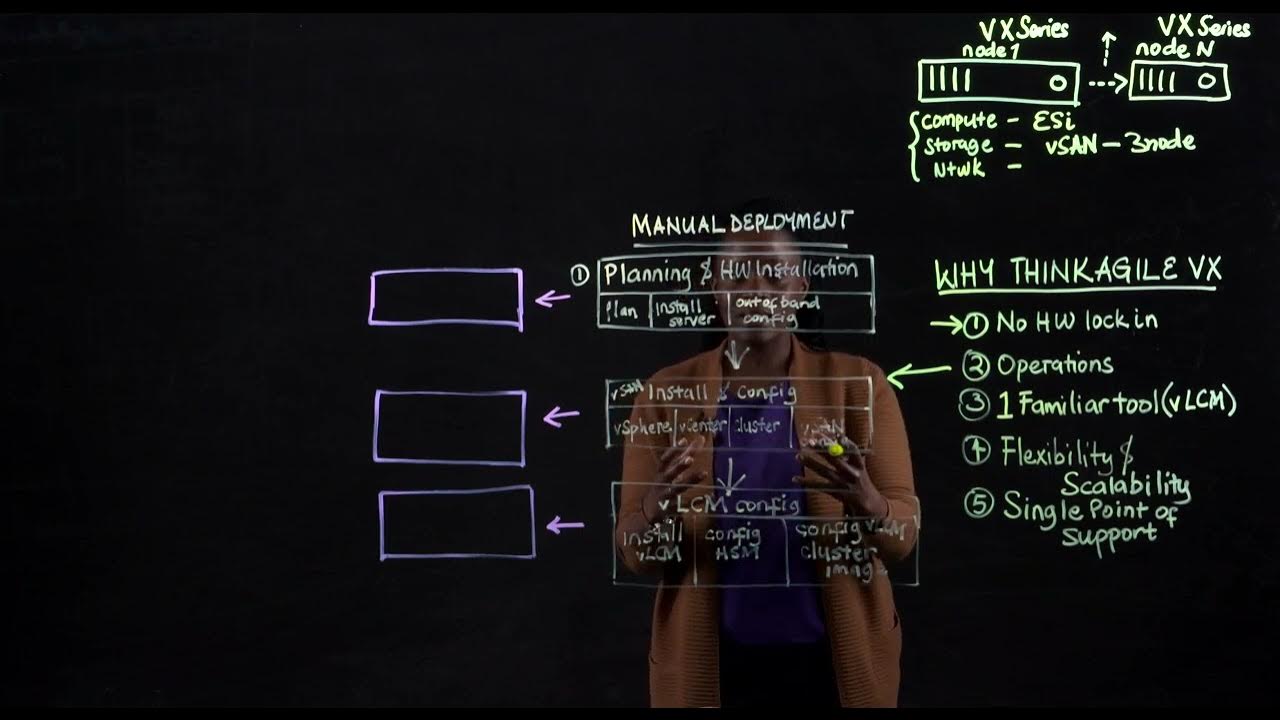 VX Series
node 1
VX Series
node N
compute - ESi
storage - vSAN - 3node
Ntwk -
MANUAL DEPLOYMENT
① Planning & HW Installation
Plan
install
server
out of band
config
vSAN Install & Config
vSphere
vCenter
cluster
vSAN
config
vLCM config
install
vLCM
config
HSM
config vLCM
cluster
image
WHY THINKAGILE VX
① No HW lock in
② Operations
③ 1 Familiar tool (vLCM)
④ Flexibility &
Scalability
⑤ Single Point of
support